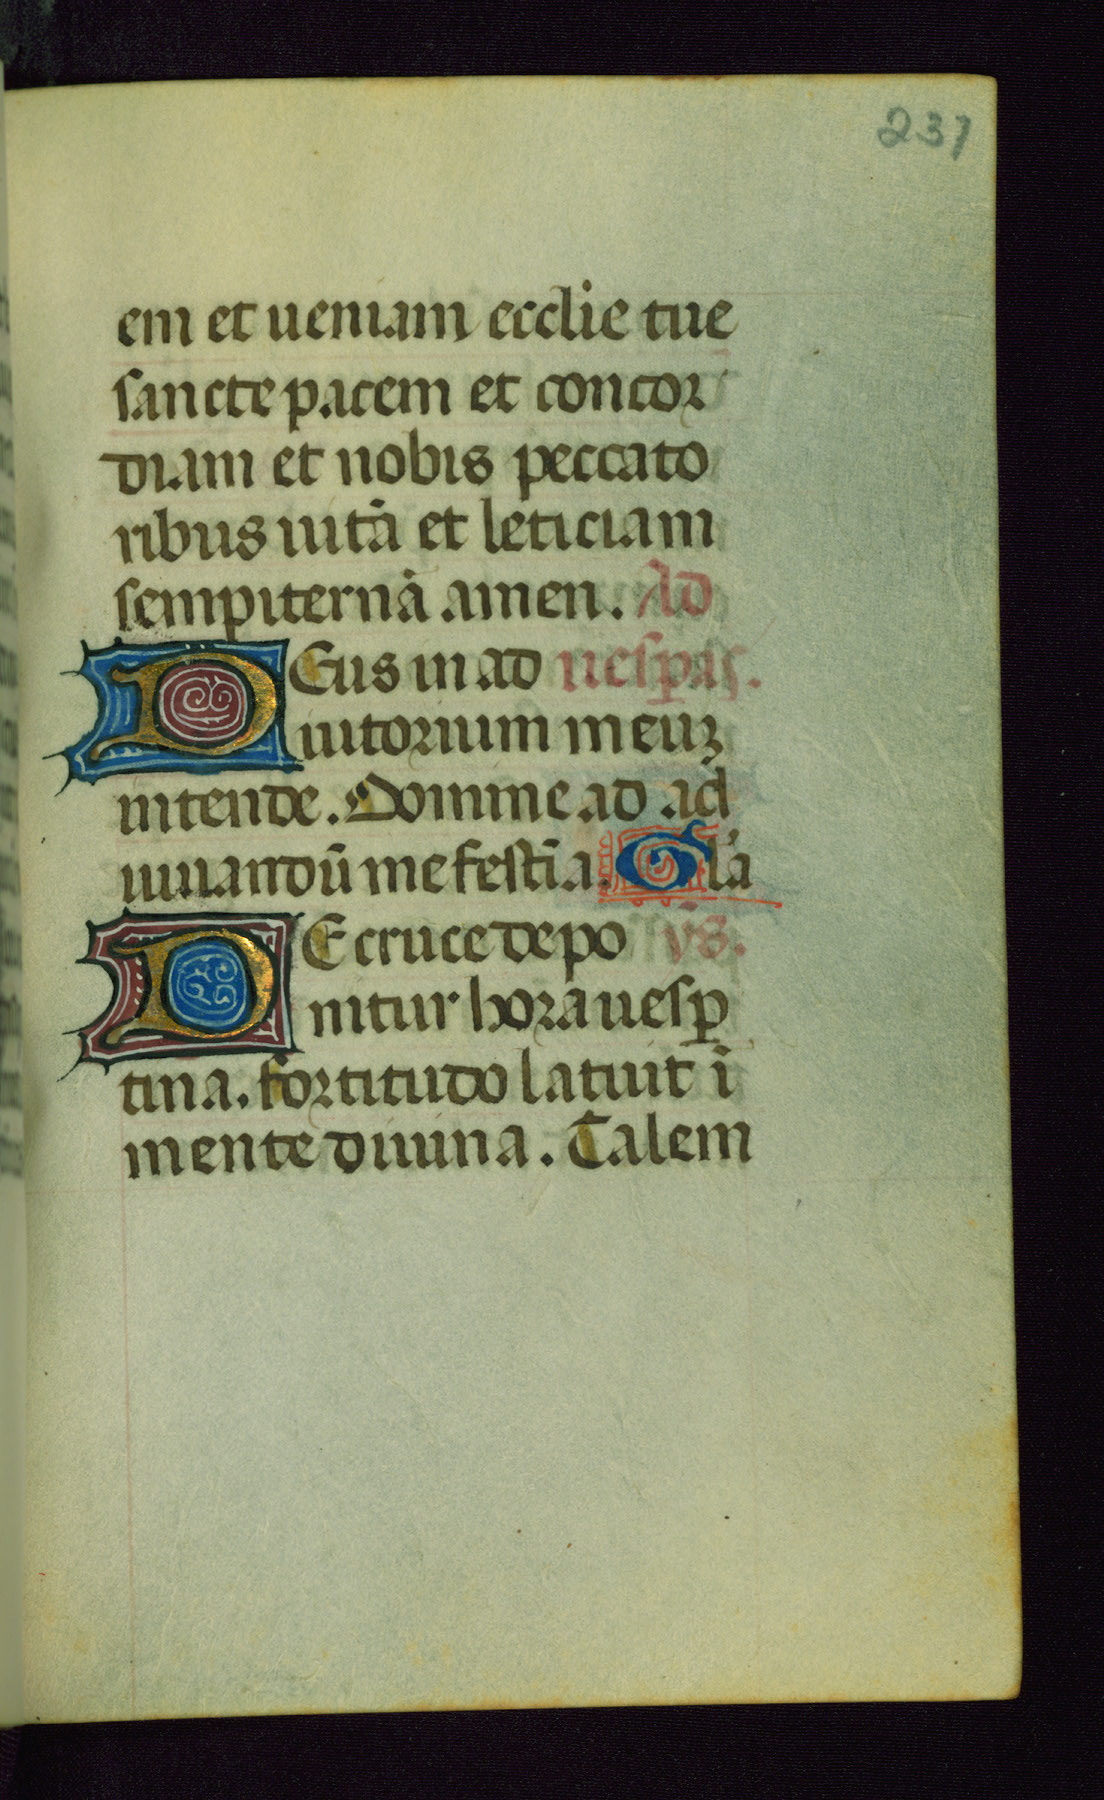 231
em et ueniam ecclie tue
sancte pacem et concor
diam et nobis peccato
ribus uitā et leticiam
sempiternā amen. Ad
DEus in ad uespas.
iutorium meuz
intende. Domine ad ad
iuuandū me festīa. Gla
DE cruce depo vs.
nitur hora uesp
tina. fortitudo latuit ī
mente diuina. Talem